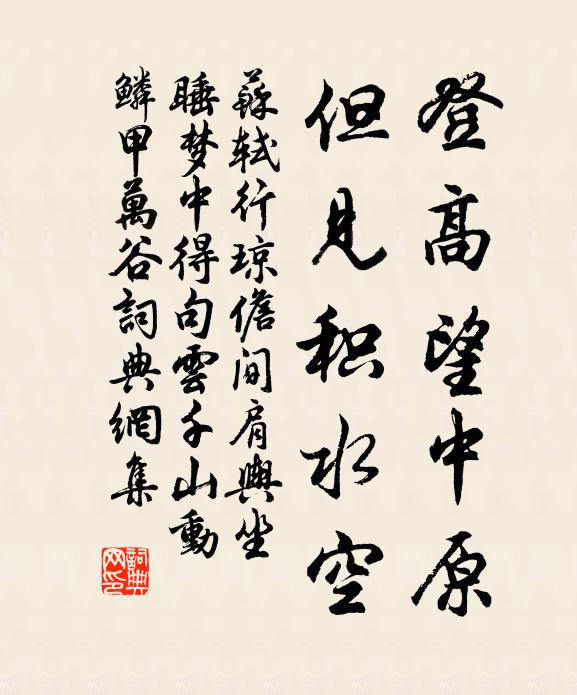 登高望中原
但見积水空
蘇轼行琼儋间肩輿坐
睡梦中得句雲千山動
鱗甲萬谷詞典網集
詞典网印